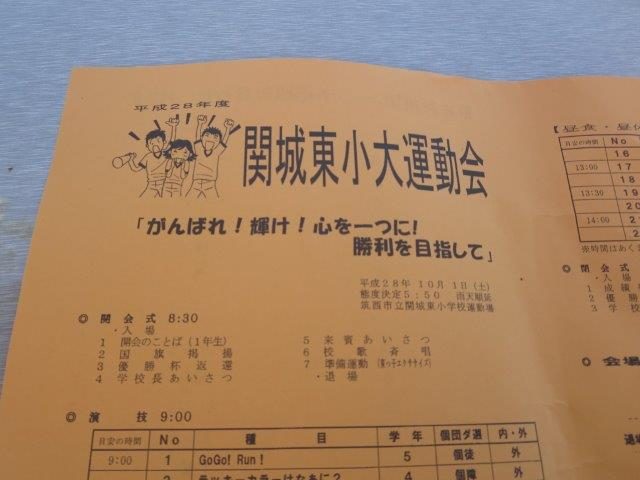 平成28年度
関城東小大運動会
「がんばれ！輝け！心を一つに！
勝利を目指して」
平成28年 10月 1日(土)
態度決定5:50 雨天順延
筑西市立関城東小学校運動場
◎ 開 会 式 8:30
・入 場
1 開会のことば(1年生)
2 国 旗 掲 揚
3 優 勝 杯 返 還
4 学校長あいさつ
5 来 賓 あ い さ つ
6 校 歌 斉 唱
7 準備運動
・退 場
◎ 演 技 9:00
目安の時間 No 種 目 学 年 個団ダ選 内・外
9:00 1 GoGo! Run! 5 個徒 外
2 ラッキーカラーはなあに? 4 個障 外
【昼食・昼休
目安の時間 No
16
13:00 17
18
13:30 19
20
14:00 21
2
※時間はあく
◎ 閉 会 式
・入 場
1 成 績
2 優 勝
3 学 校
◎ 会場
退場